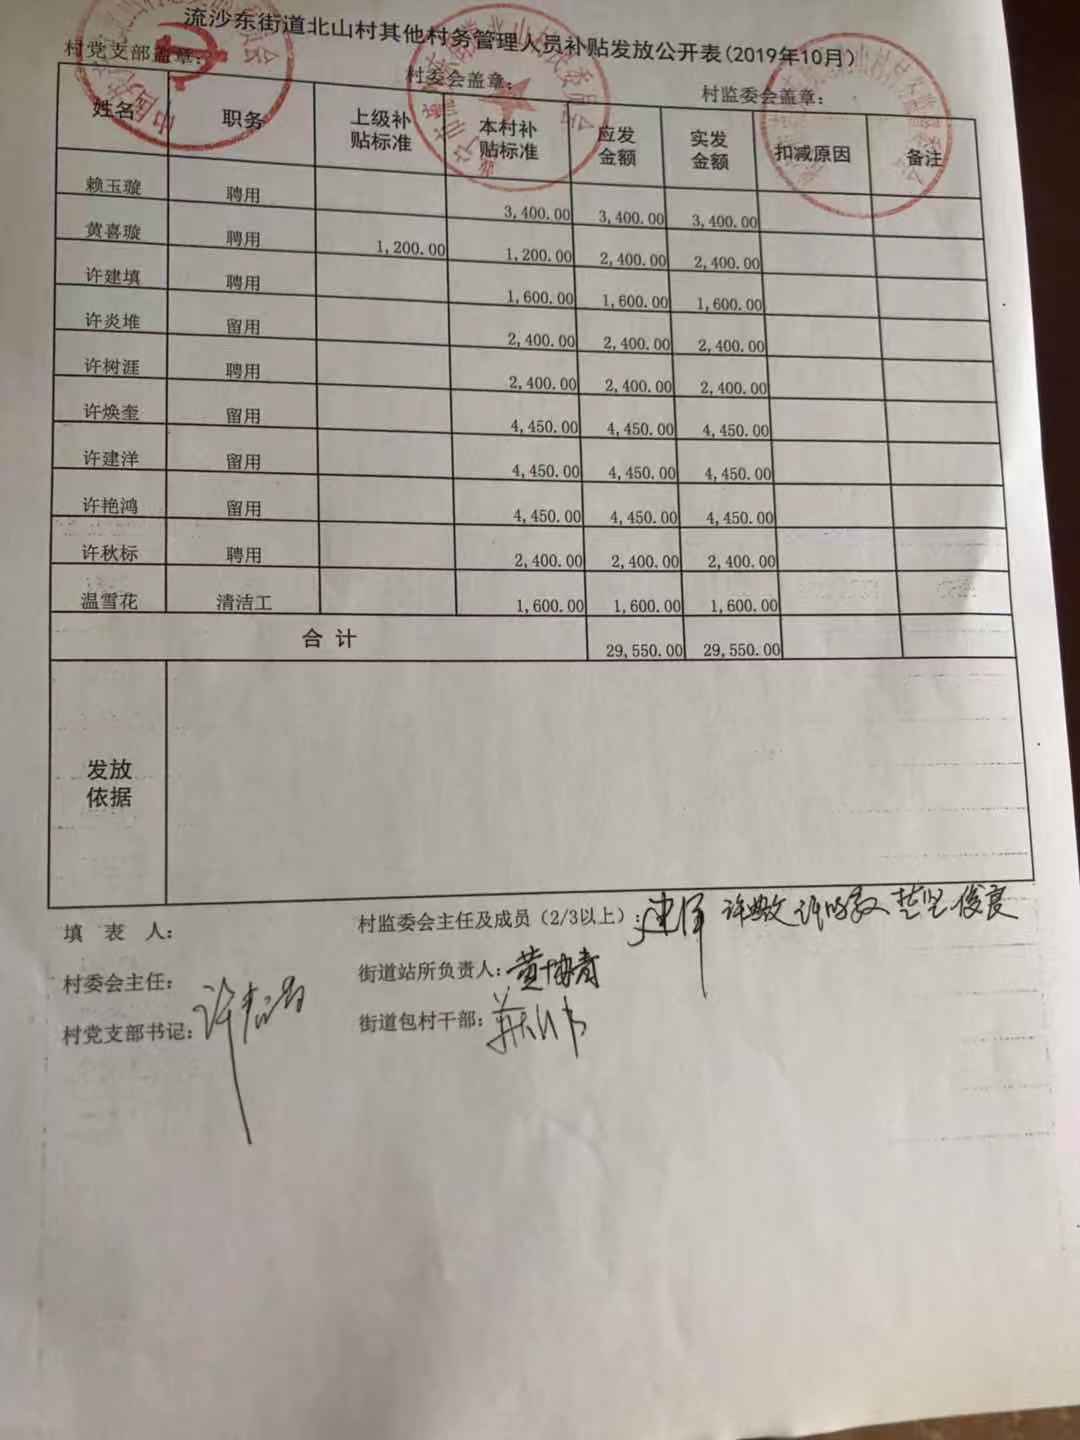 流沙东街道北山村其他村务管理人员补贴发放公开表(2019年10月)
村党支部盖章: 村委会盖章: 村监委会盖章:
姓名 职务 上级补贴标准 本村补贴标准 应发金额 实发金额 扣减原因 备注
赖玉璇 聘用 3,400.00 3,400.00 3,400.00
黄喜璇 聘用 1,200.00 1,200.00 2,400.00 2,400.00
许建填 聘用 1,600.00 1,600.00 1,600.00
许炎堆 留用 2,400.00 2,400.00 2,400.00
许树涯 聘用 2,400.00 2,400.00 2,400.00
许焕奎 留用 4,450.00 4,450.00 4,450.00
许建洋 留用 4,450.00 4,450.00 4,450.00
许艳鸿 留用 4,450.00 4,450.00 4,450.00
许秋标 聘用 2,400.00 2,400.00 2,400.00
温雪花 清洁工 1,600.00 1,600.00 1,600.00
合 计 29,550.00 29,550.00
发放
依据
填 表 人: 村监委会主任及成员(2/3以上):
村委会主任: 街道站所负责人:
村党支部书记: 街道包村干部: